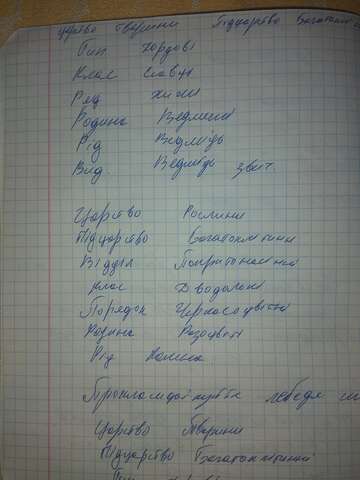 царство Тварини Підцарство Багатоклі
Тип Хордові
Клас Ссавці
Ряд Хижі
Родина Ведмежі
Рід Ведмідь
Вид Ведмідь звич.
Царство Рослини
Підцарство Багатоклітинні
Відділ Покритонасінні
клас Дводольні
Порядок
Родина Розоцвіті
Рід Малина
лебедя
Царство Тварини
Підцарство Багатоклітинні